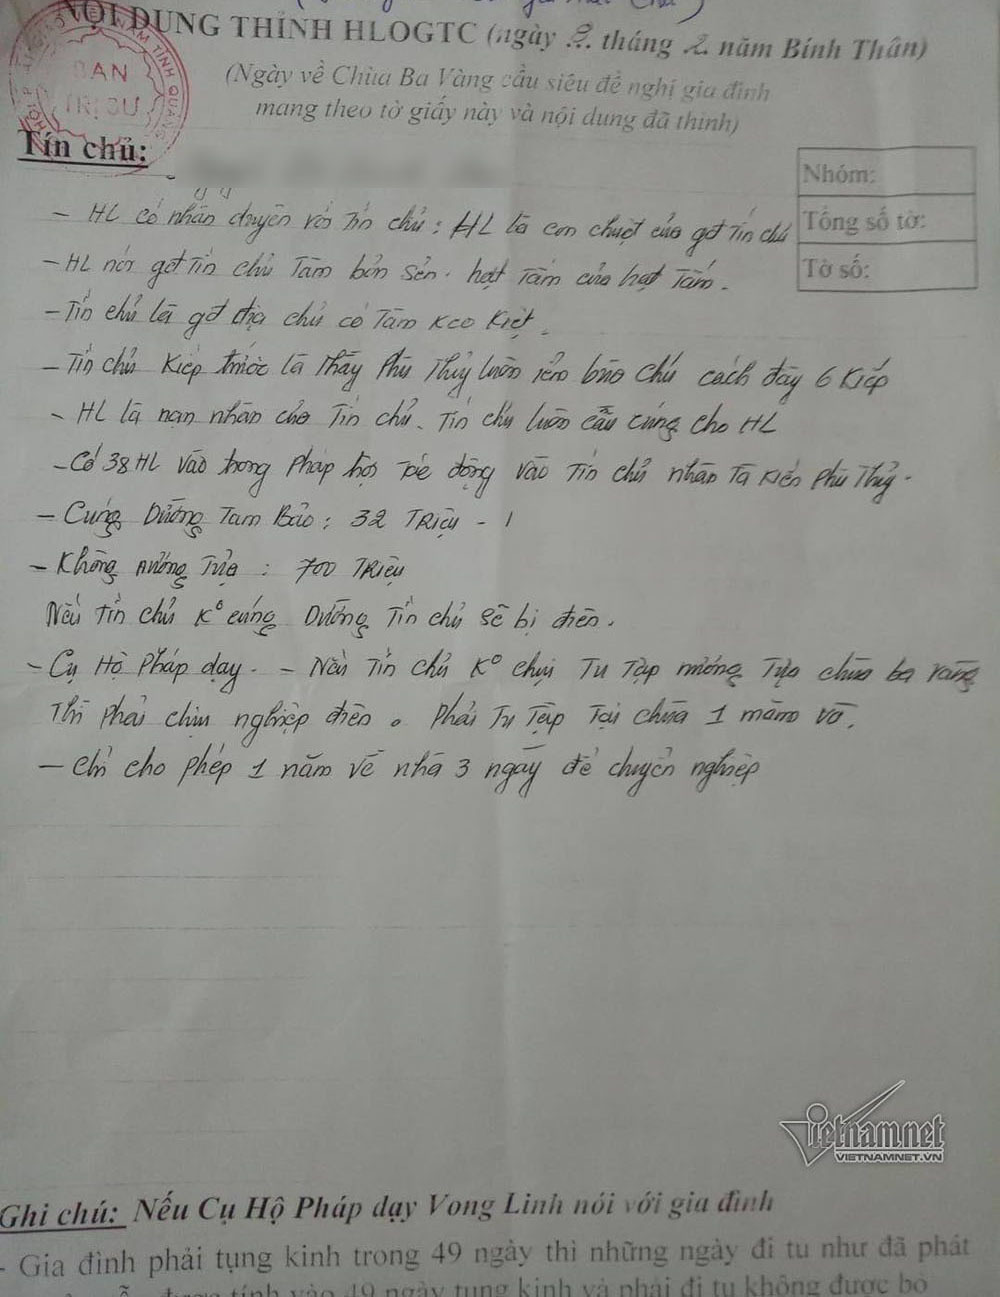 NỘI DUNG THỈNH HLOGTC (ngày 2 tháng 2 năm Bính Thân)
(Ngày về Chùa Ba Vàng cầu siêu đề nghị gia đình
mang theo tờ giấy này và nội dung đã thỉnh)
BAN
TRỊ SỰ
Tín chủ:
Nhóm:
Tổng số tờ:
Tờ số:
- HL có nhân duyên với Tín chủ: HL là con chuột của gđ Tín chủ
- HL nói gđ Tín chủ Tâm bỏn sẻn. hạt Tấm của hạt Tấm.
- Tín chủ là gđ địa chủ có Tâm keo kiệt.
- Tín chủ kiếp trước là Thầy Phù Thủy luôn yểm bùa chú cách đây 6 kiếp
- HL là nạn nhân của Tín chủ. Tín chủ luôn cầu cúng cho HL
- Có 38 HL vào trong Pháp hội tác động vào Tín chủ nhân Tà kiến Phù Thủy.
- Cúng Dường Tam Bảo: 32 Triệu - 1
- Không nương Tựa: 700 Triệu
Nếu Tín chủ K° cúng Dường Tín chủ sẽ bị điên.
- Cụ Hộ Pháp dạy. - Nếu Tín chủ K° chịu Tu Tập nương Tựa chùa ba vàng
Thì phải chịu nghiệp điên. Phải Tu Tập Tại chùa 1 năm
- Chỉ cho phép 1 năm về nhà 3 ngày để chuyển nghiệp
vietnamnet
VIETNAMNET.VN
Ghi chú: Nếu Cụ Hộ Pháp dạy Vong Linh nói với gia đình
- Gia đình phải tụng kinh trong 49 ngày thì những ngày đi tu như đã phát
được tính vào 49 ngày tụng kinh và phải đi tu không được bỏ